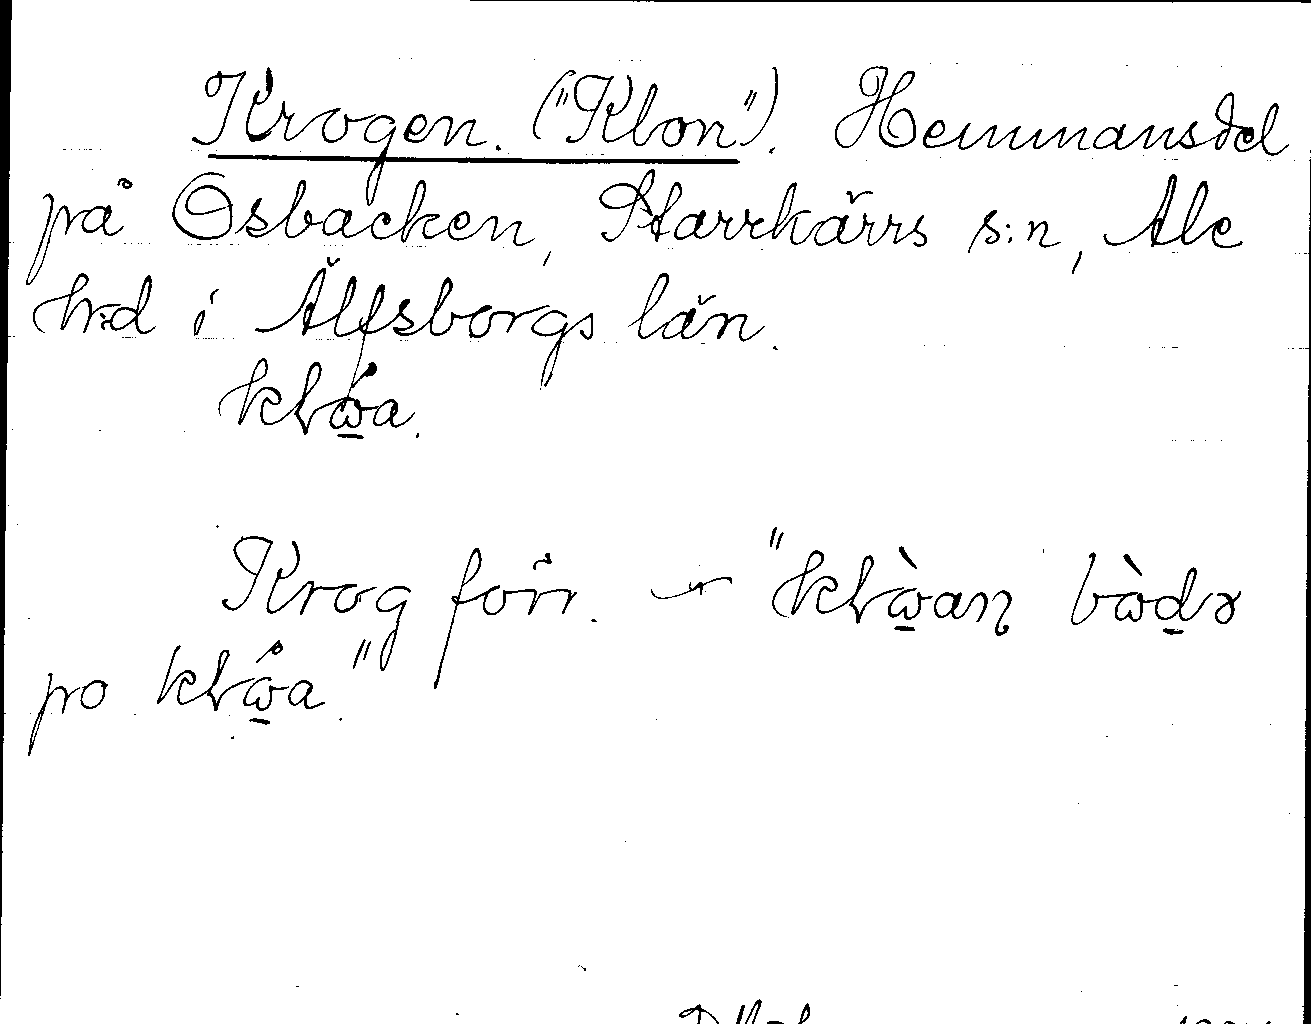 Krogen. ("Klon"). Hemmansdel
på Osbacken, Starrkärrs s:n, Ale
h:d i Älfsborgs län.
krώ̲a.
Krog förr. – "krὼ̲an bὼd̲ə
po krώ̲a."